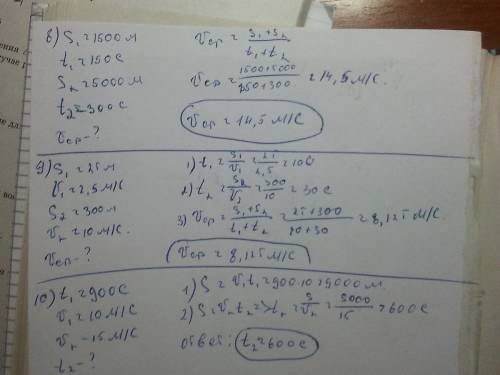 8) S₁ = 1500 м
t₁ = 150 с
S₂ = 5000 м
t₂ = 300 с
Vср - ?
Vср = (S₁+S₂)/(t₁+t₂)
Vср = (1500+5000)/(150+300) = 14,5 м/с.
Vср = 14,5 м/с
9) S₁ = 25 м
V₁ = 2,5 м/с
S₂ = 300 м
V₂ = 10 м/с.
Vср - ?
1) t₁ = S₁/V₁ = 25/2,5 = 10 с
2) t₂ = S₂/V₂ = 300/10 = 30 с
3) Vср = (S₁+S₂)/(t₁+t₂) = (25+300)/(10+30) = 8,125 м/с.
Vср = 8,125 м/с
10) t₁ = 900 с
V₁ = 10 м/с
V₂ - 15 м/с
t₂ - ?
1) S = V₁t₁ = 900·10 = 9000 м.
2) S = V₂t₂ => t₂ = S/V₂ = 9000/15 = 600 с
ответ: t₂ = 600 с